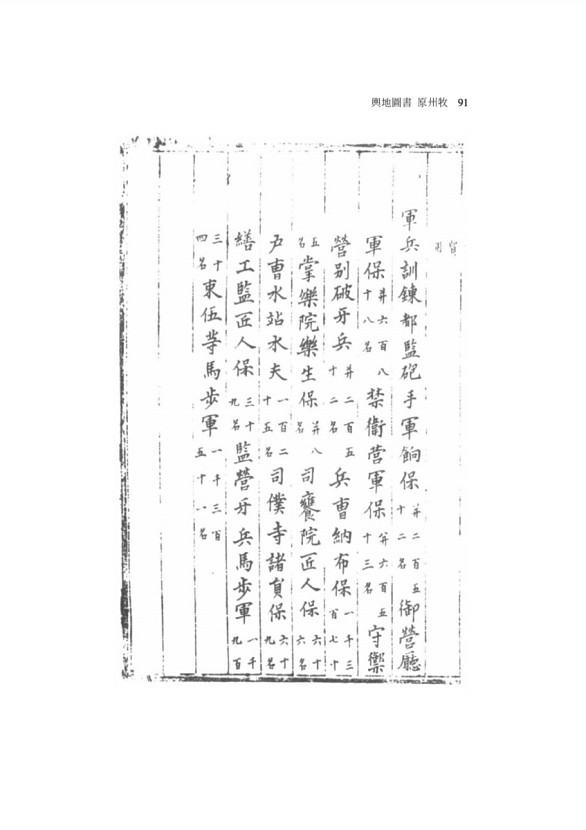 輿地圖書 原州牧 91
軍兵訓鍊都監砲手軍餉保幷二百五十二名御營廳
軍保幷六百八十八名禁衛營軍保幷六百五十三名守禦
營別破牙兵幷二百五十二名兵曹納布保一千三百七十
五名掌樂院樂生保幷八名司饔院匠人保六十六名
戶曹水站水夫一百二十五名司僕寺諸員保六十九名
繕工監匠人保三十九名監營牙兵馬步軍一千九百
三十四名束伍等馬步軍一千三百五十一名